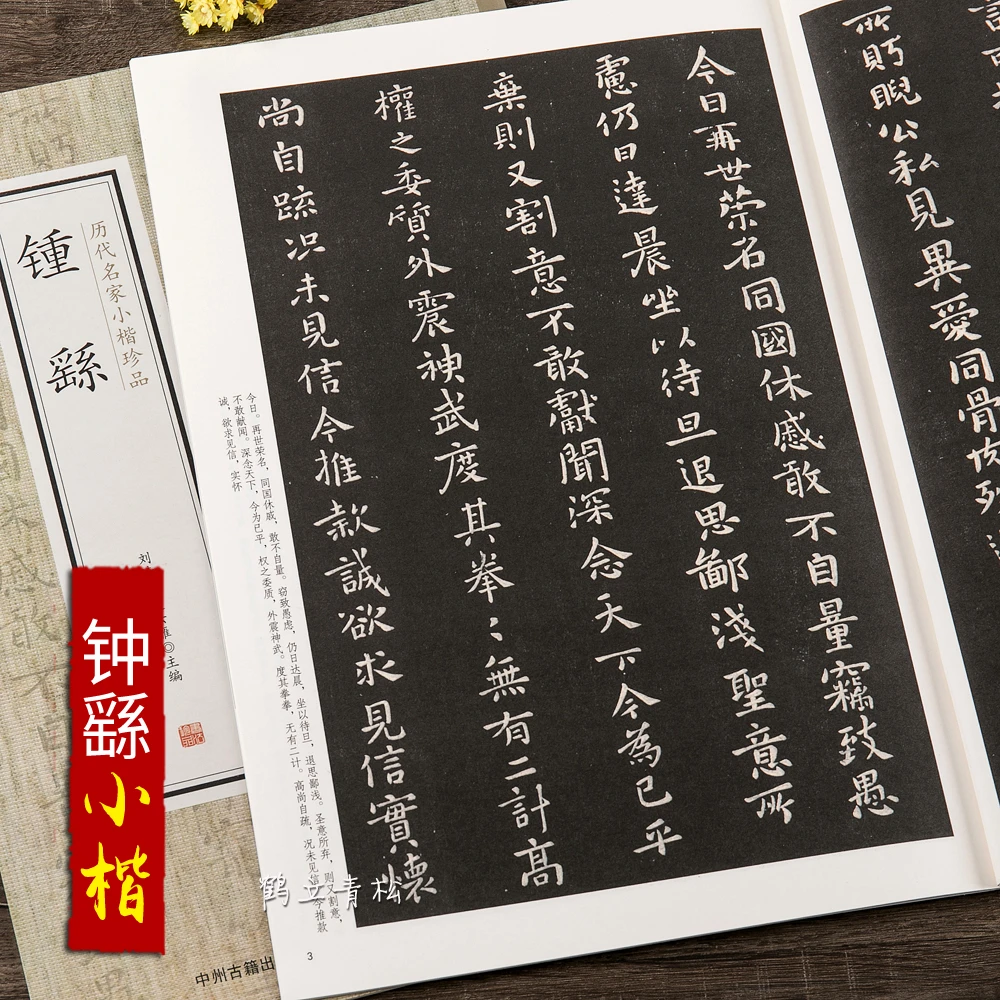 所眄睨公私見異愛同骨
今日再世榮名同國休慼敢不自量竊致愚
慮仍日達晨坐以待旦退思鄙淺聖意所
棄則又割意不敢獻聞深念天下今為已平
權之委質外震神武度其拳〻無有二計高
尚自疏况未見信今推款誠欲求見信實懷
今日。再世荣名，同国休戚，敢不自量。窃致愚虑，仍日达晨，坐以待旦，退思鄙浅。圣意所弃，则又割意，
不敢献闻。深念天下，今为已平，权之委质，外震神武。度其拳拳，无有二计。高尚自疏，况未见信，今推款
诚，欲求见信，实怀
3
历代名家小楷珍品
锺繇
主编
中州古籍出
钟繇小楷
鹤立青松